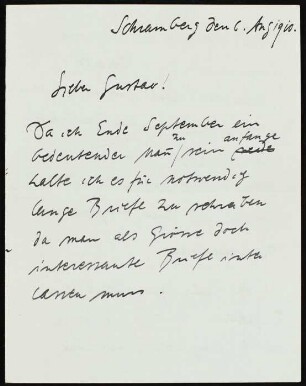 Schramberg den 6. Aug 1910.
Lieber Gustav!
Da ich Ende September ein
bedeutender Mann zu sein anfange
halte ich es für notwendig
lange Briefe zu schreiben
da man als Grösse doch
interessante Briefe hinter
lassen muss.